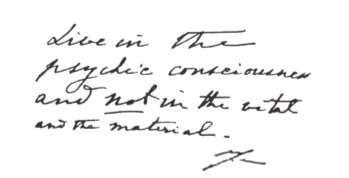 Live in the
psychic consciousness
and not in the vital
and the material.